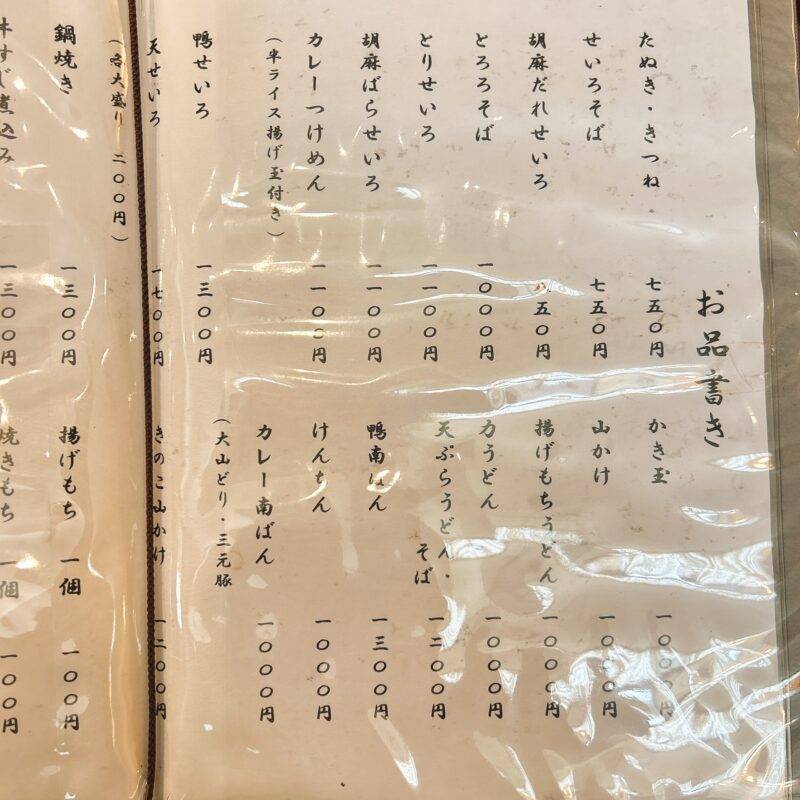 お品書き
たぬき・きつね 七五〇円
せいろそば 七五〇円
胡麻だれせいろ 五〇円
とろろそば 一〇〇〇円
とりせいろ 一一〇〇円
胡麻ばらせいろ 一一〇〇円
カレーつけめん 一一〇〇円
(半ライス揚げ玉付き)
鴨せいろ 一三〇〇円
天せいろ 一七〇〇円
(各大盛り 二〇〇円)
鍋焼き 一三〇〇円
牛すじ煮込み 一三〇〇円
かき玉 一〇〇〇円
山かけ 一〇〇〇円
揚げもちうどん 一〇〇〇円
力うどん 一〇〇〇円
天ぷらうどん・
そば 一二〇〇円
鴨南ばん 一三〇〇円
けんちん 一〇〇〇円
カレー南ばん 一〇〇〇円
(大山どり・三元豚)
きのこ山かけ 一二〇〇円
揚げもち 一個 一〇〇円
焼きもち 一個 一〇〇円